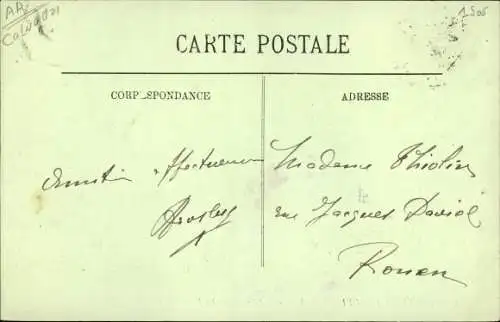 AR
Calvados
1505
CARTE POSTALE
CORRESPONDANCE
ADRESSE
Amitié affectueuse
Madame Thiolin
rue Jacques Daviel
Rouen